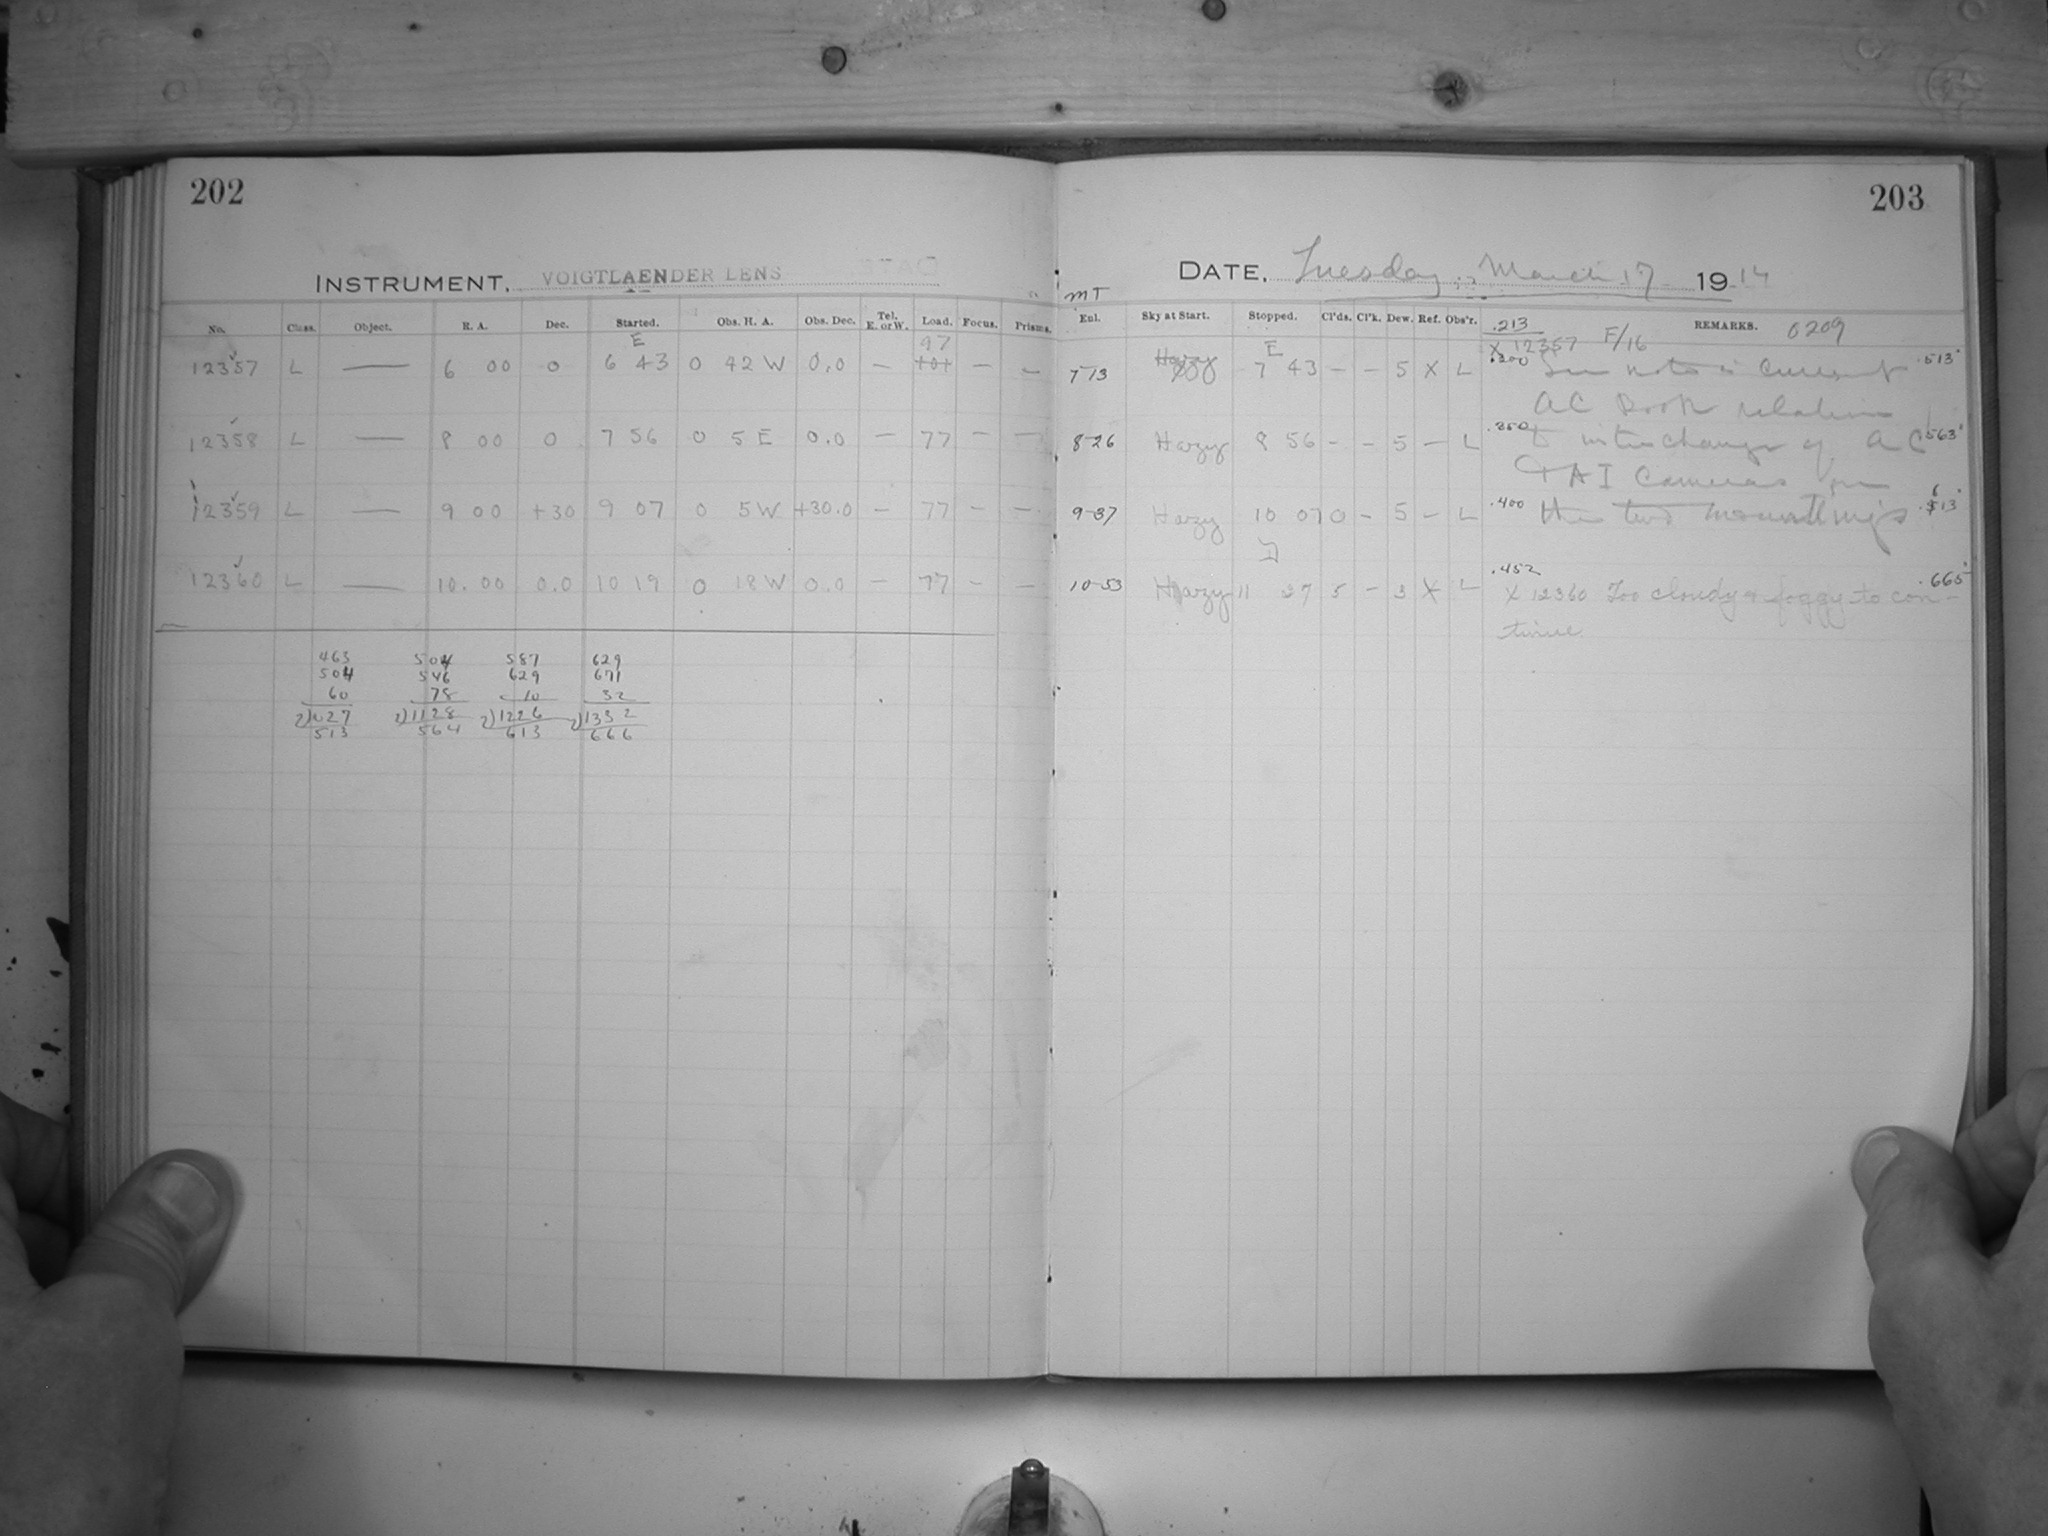 202
INSTRUMENT, VOIGTLAENDER LENS
No. Class. Object. R. A. Dec. Started. Obs. H. A. Obs. Dec. Tel. E. or W. Load. Focus. Prisms.
E 97
12357 L — 6 00 0 6 43 0 42 W 0.0 — 101 — —
12358 L — 8 00 0 7 56 0 5 E 0.0 — 77 — —
12359 L — 9 00 +30 9 07 0 5 W +30.0 — 77 — —
12360 L — 10.00 0.0 10 19 0 18 W 0.0 — 77 — —
463 504 587 629
504 546 629 671
60 78 10 32
2)1027 2)1128 2)1226 2)1332
513 564 613 666
203
DATE, Tuesday, March 17 1914
MT
Eul. Sky at Start. Stopped. Cl'ds. Cl'k. Dew. Ref. Obs'r. REMARKS.
.213 0209
E X 12357 F/16
7-13 Hazy 7 43 - - 5 X L .300 See note in current .513
AC Book relative
8-26 Hazy 8 56 - - 5 - L .350 to interchange of AC .563
+ AI Cameras on
9-37 Hazy 10 07 0 - 5 - L .400 the two mountings .513
6
.452
10-53 Hazy 11 27 5 - 3 X L X 12360 Too cloudy & foggy to con- .665
tinue.